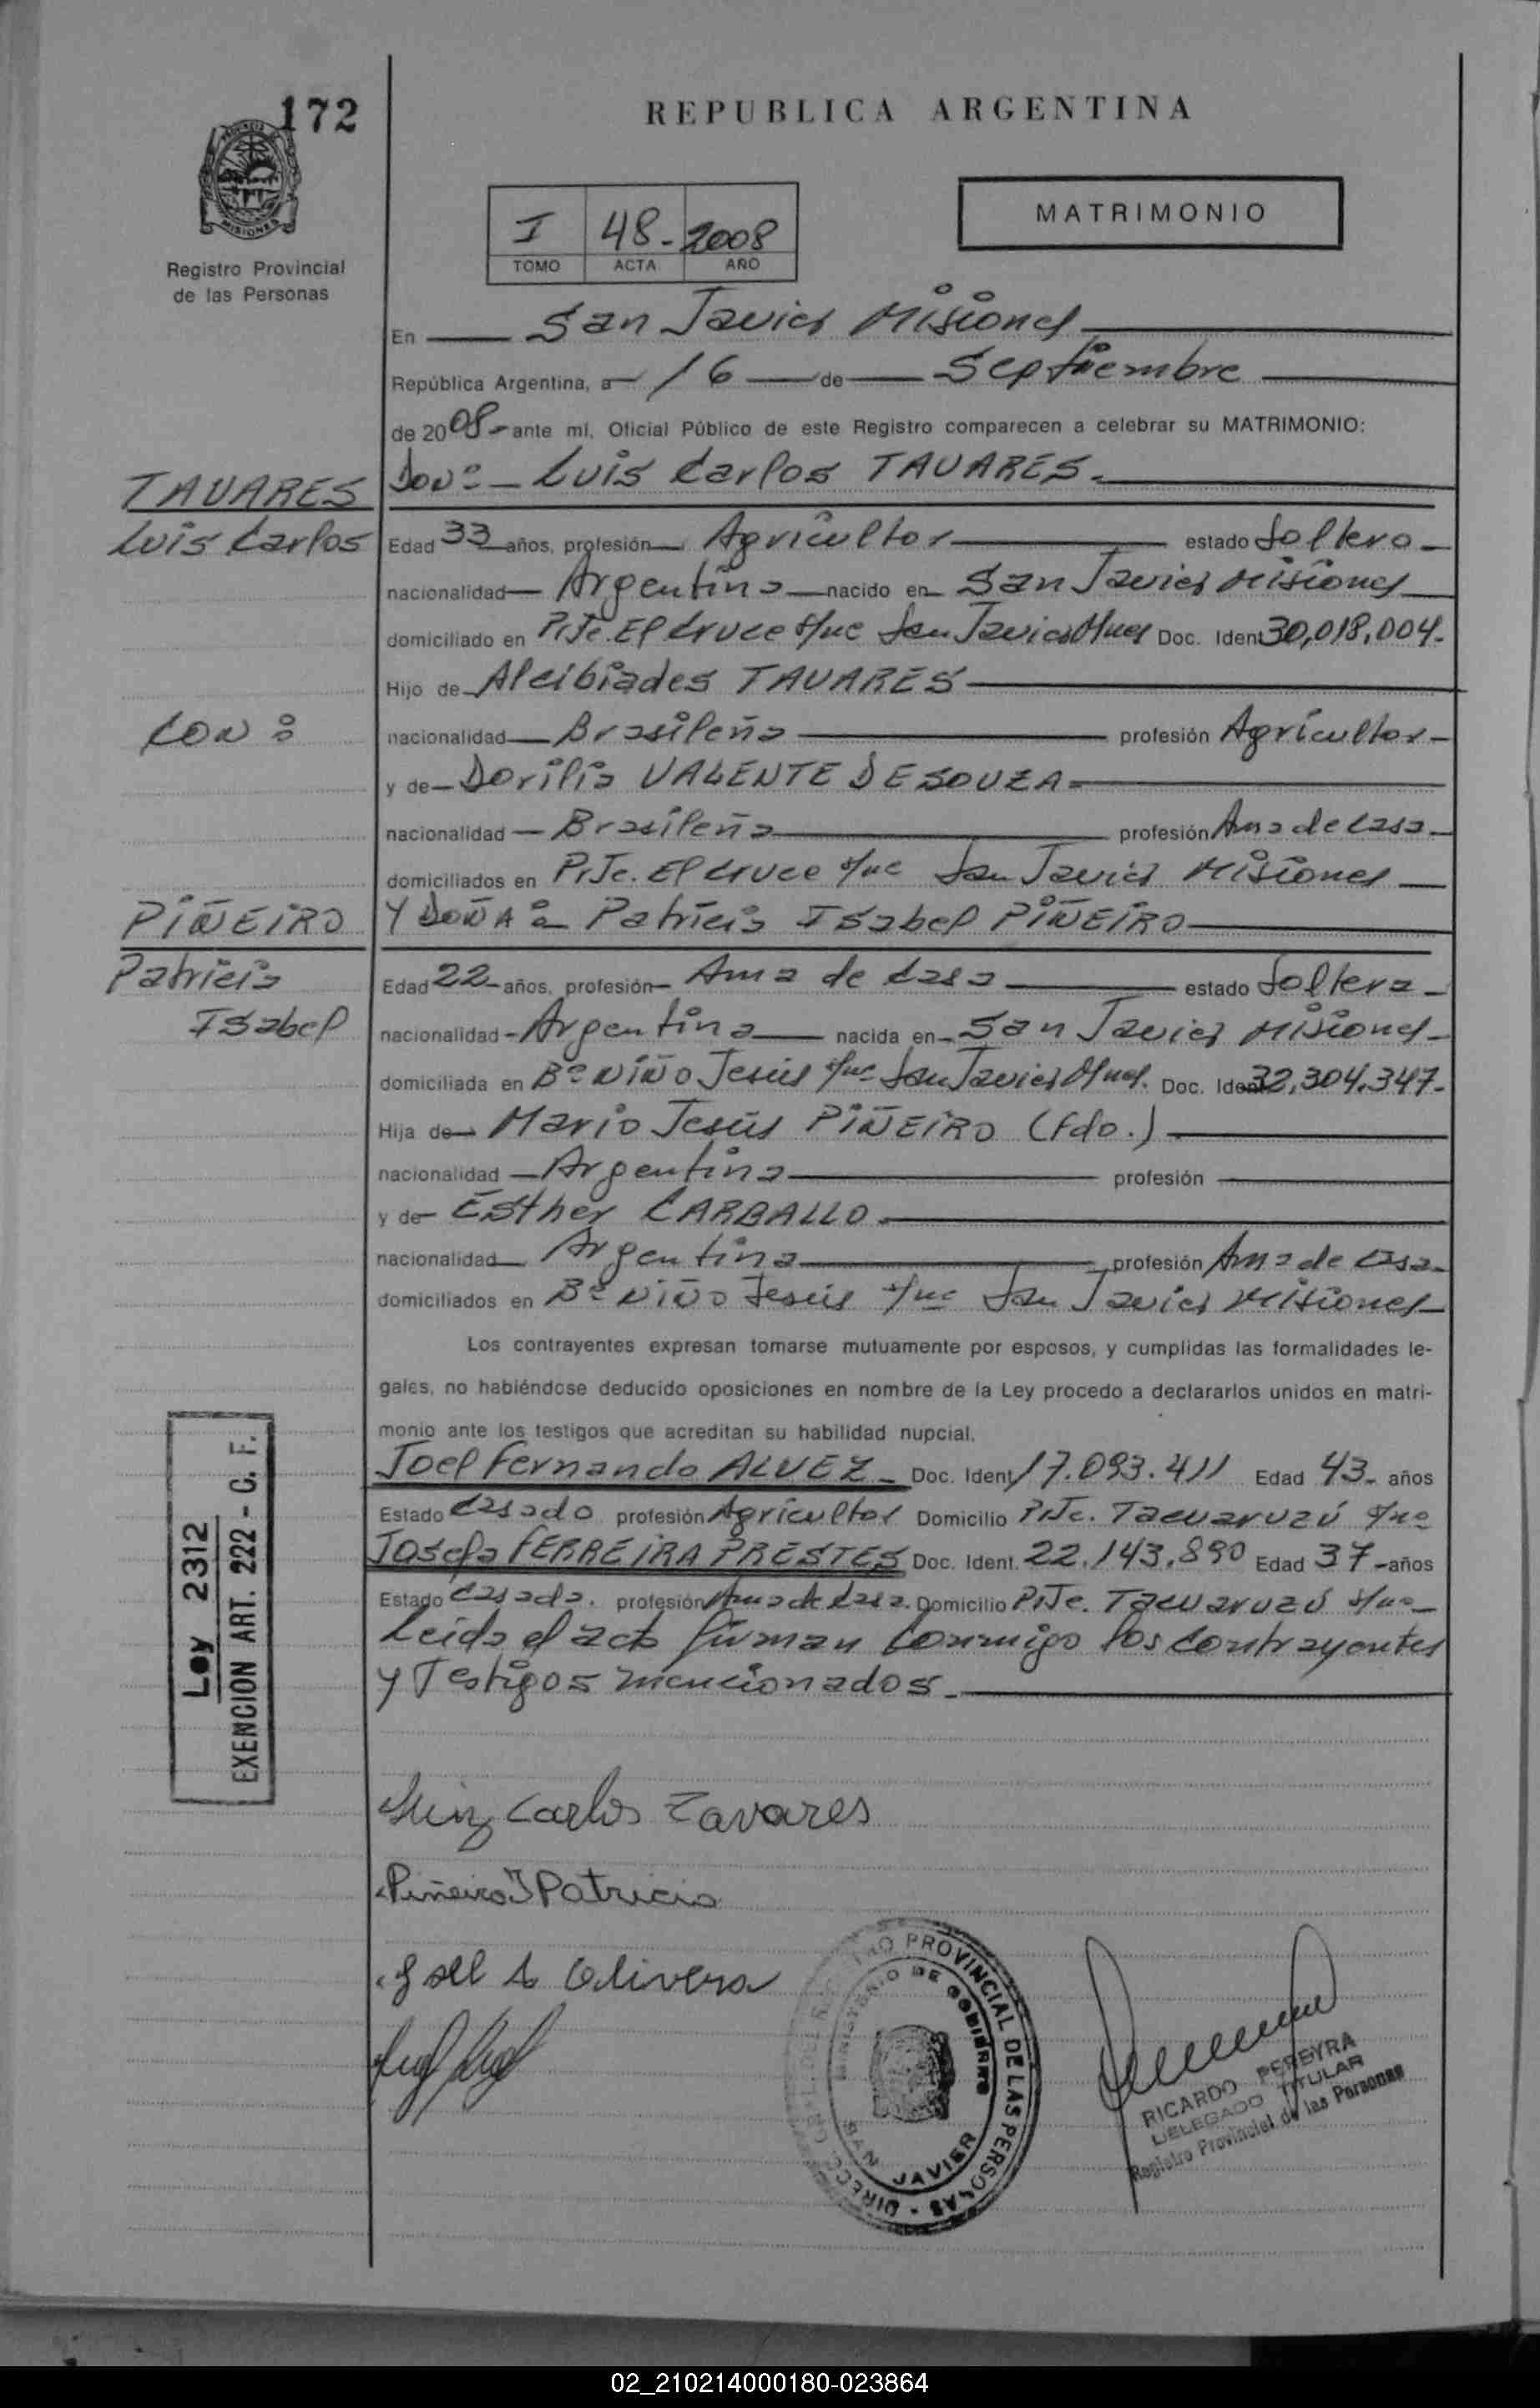 172
REPUBLICA ARGENTINA
MATRIMONIO
I 48-2008
TOMO ACTA AÑO
Registro Provincial
de las Personas
En San Javier Misiones
República Argentina, a 16 de Septiembre
de 2008 ante mí, Oficial Público de este Registro comparecen a celebrar su MATRIMONIO:
TAVARES
Luis Carlos
DON: Luis Carlos TAVARES.
Edad 33 años, profesión Agricultor estado Soltero
nacionalidad Argentina nacido en San Javier Misiones
domiciliado en PJe. El Cruce San Javier Doc. Ident 30,018,004.
Hijo de Alcibiades TAVARES
CON:
nacionalidad Brasileña profesión Agricultor
y de Dorilia VALENTE DE SOUZA
nacionalidad Brasileña profesión Ama de Casa
domiciliados en PJe. El Cruce San Javier Misiones
PIÑEIRO
Patricia
Isabel
Y DOÑA: Patricia Isabel PIÑEIRO
Edad 22 años, profesión Ama de Casa estado Soltera
nacionalidad Argentina nacida en San Javier Misiones
domiciliada en Bº NIÑO Jesús San Javier Doc. Ident 32,304.347.
Hija de Mario Jesús PIÑEIRO (Fdo.)
nacionalidad Argentina profesión
y de Esther CARBALLO
nacionalidad Argentina profesión Ama de Casa
domiciliados en Bº NIÑO Jesús San Javier Misiones
Los contrayentes expresan tomarse mutuamente por esposos, y cumplidas las formalidades le-
gales, no habiéndose deducido oposiciones en nombre de la Ley procedo a declararlos unidos en matri-
monio ante los testigos que acreditan su habilidad nupcial.
Joel Fernando ALVEZ Doc. Ident 17.093.411 Edad 43 años
Estado Casado profesión Agricultor Domicilio PJe. Tacuaruzú
Josefa FERREIRA PRESTES Doc. Ident. 22.143.890 Edad 37 años
Estado Casada. profesión Ama de Casa. Domicilio PJe. Tacuaruzú
Leida el acta firman conmigo los contrayentes
y Testigos mencionados.
Ley 2312
EXENCION ART. 222 - C. F.
Luiz Carlos Tavares
Piñeiro I Patricia
PROVINCIAL DE LAS PERSONAS
MINISTERIO DE GOBIERNO
SAN JAVIER
RICARDO PEREYRA
DELEGADO TITULAR
Registro Provincial de las Personas
02_210214000180-023864